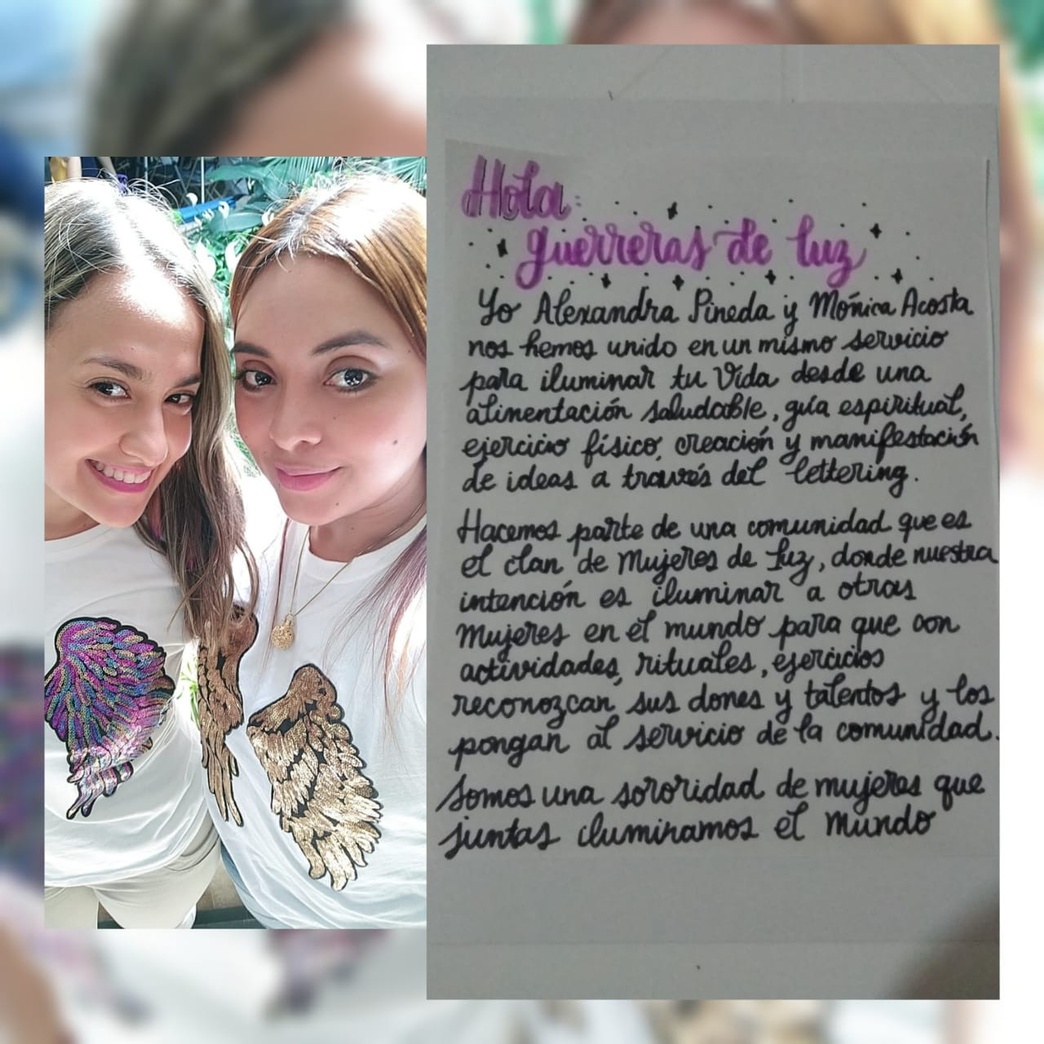 Hola
guerreras de luz
Yo Alexandra Pineda y Mónica Acosta
nos hemos unido en un mismo servicio
para iluminar tu Vida desde una
alimentación saludable, guía espiritual,
ejercicio físico, creación y manifestación
de ideas a través del lettering.
Hacemos parte de una comunidad que es
el clan de Mujeres de Luz, donde nuestra
intención es iluminar a otras
Mujeres en el mundo para que con
actividades, rituales, ejercicios
reconozcan sus dones y talentos y los
pongan al servicio de la comunidad.
Somos una sororidad de mujeres que
juntas iluminamos el mundo